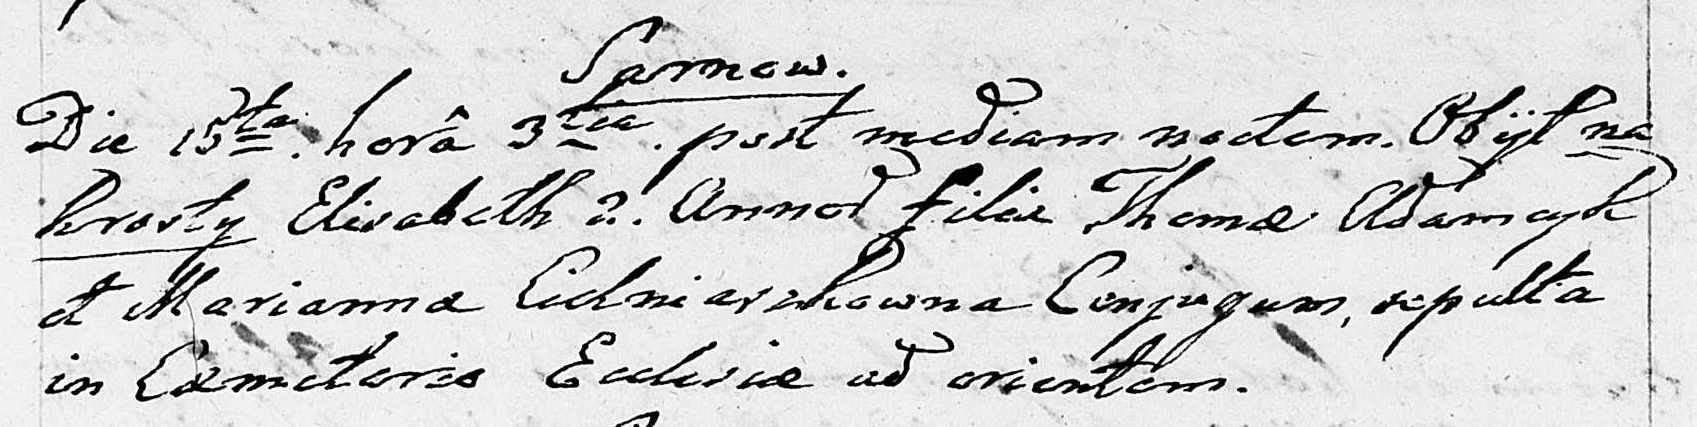 Sarnow.
Die 15ta. horâ 3tia. post mediam noctem. Obijt na
krosty Elisabeth 2. Annor filia Thomæ Adamczyk
et Mariannæ Cielniaszkowna Conjugum, sepulta
in Cæmeterio Ecclesiæ ad orientem.